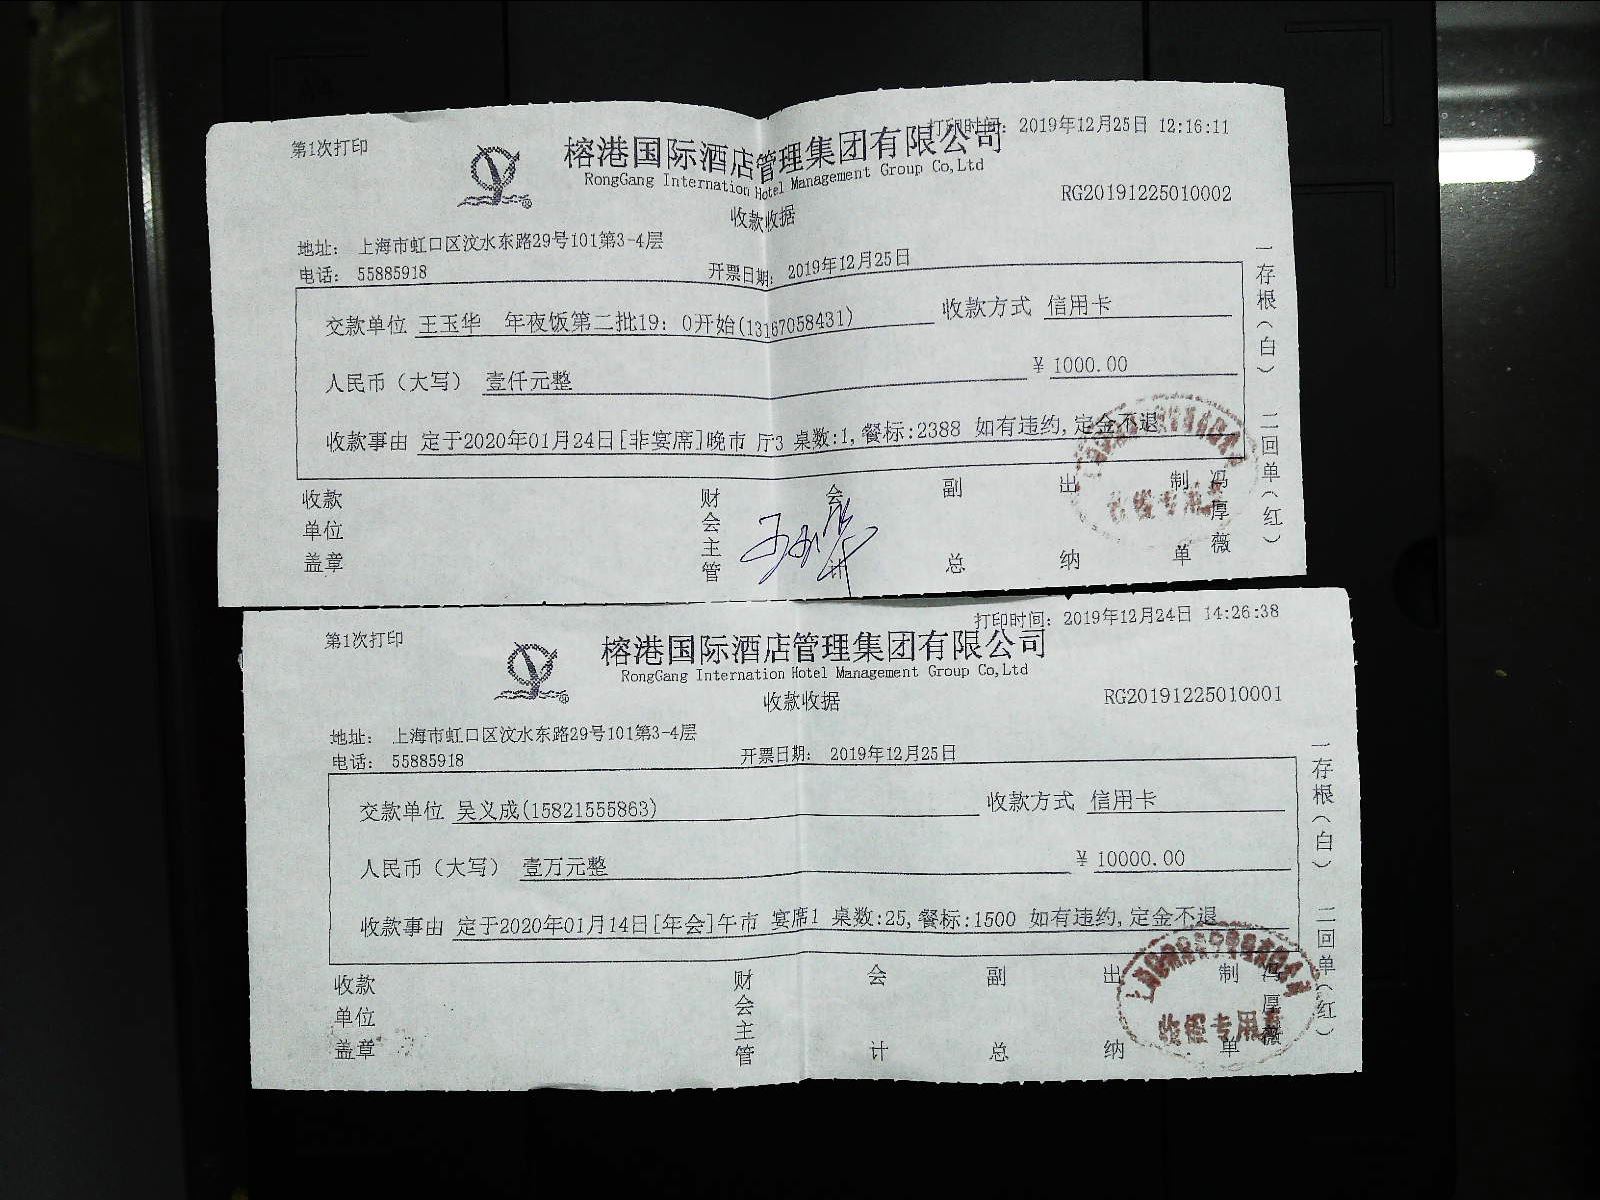 第1次打印
打印时间: 2019年12月25日 12:16:11
榕港国际酒店管理集团有限公司
RongGang Internation Hotel Management Group Co,Ltd
RG20191225010002
收款收据
地址: 上海市虹口区汶水东路29号101第3-4层
电话: 55885918 开票日期: 2019年12月25日
交款单位 王玉华 年夜饭第二批19: 0开始(13167058431) 收款方式 信用卡
人民币(大写) 壹仟元整 ¥ 1000.00
收款事由 定于2020年01月24日[非宴席]晚市 厅3 桌数:1,餐标:2388 如有违约,定金不退
一存根(白) 二回单(红)
收款单位盖章 财会主管 会计 副总 出纳 制单 冯厚薇
收据专用章
第1次打印
打印时间: 2019年12月24日 14:26:38
榕港国际酒店管理集团有限公司
RongGang Internation Hotel Management Group Co,Ltd
RG20191225010001
收款收据
地址: 上海市虹口区汶水东路29号101第3-4层
电话: 55885918 开票日期: 2019年12月25日
交款单位 吴义成(15821555863) 收款方式 信用卡
人民币(大写) 壹万元整 ¥ 10000.00
收款事由 定于2020年01月14日[年会]午市 宴席1 桌数:25,餐标:1500 如有违约,定金不退
一存根(白) 二回单(红)
收款单位盖章 财会主管 会计 副总 出纳 制单 冯厚薇
收据专用章